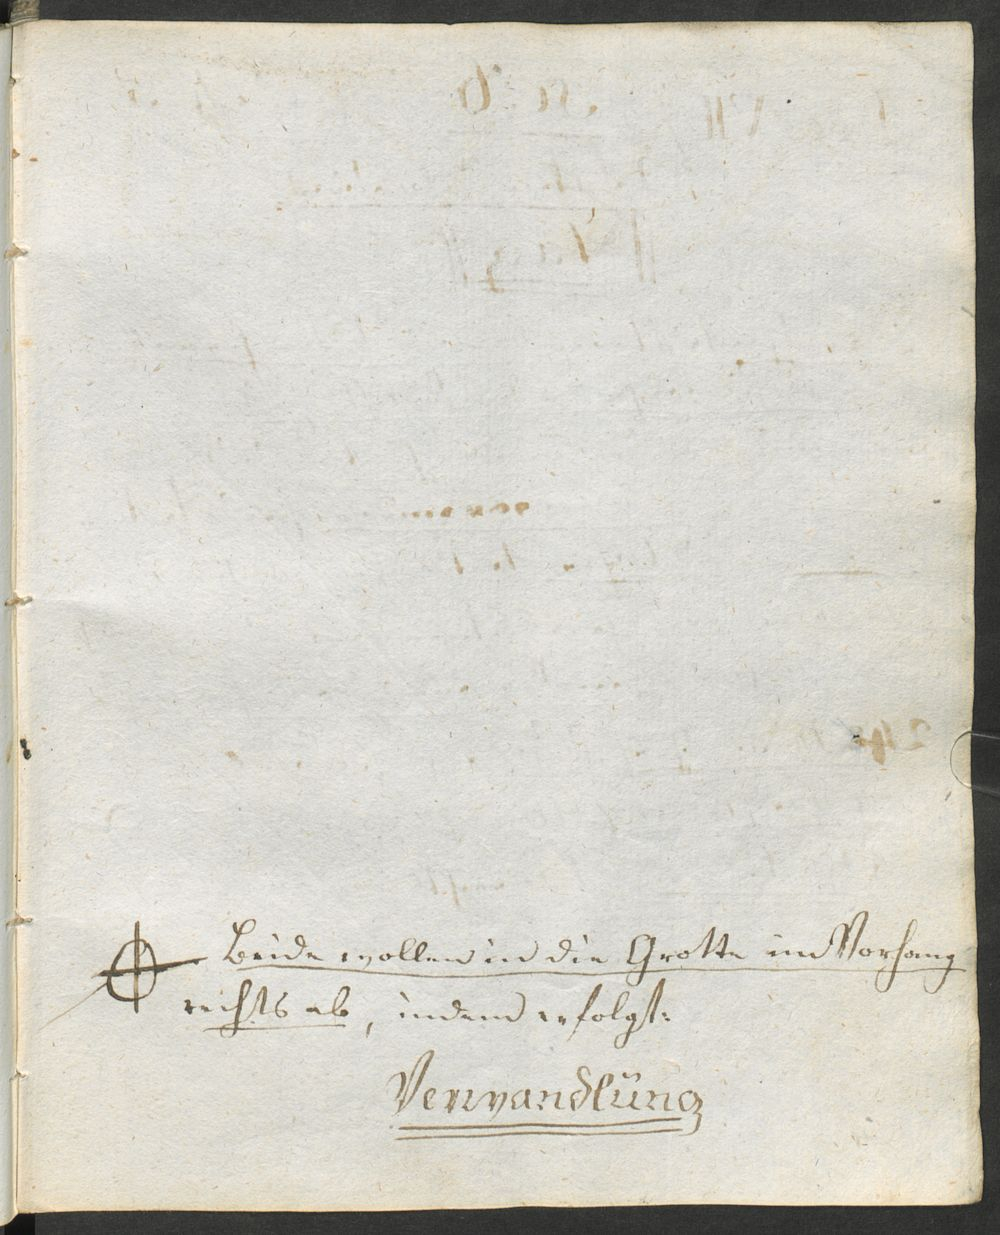 Beide wollen in die Grotte im Vorhang
rechts ab, indem erfolgt:
Verwandlüng